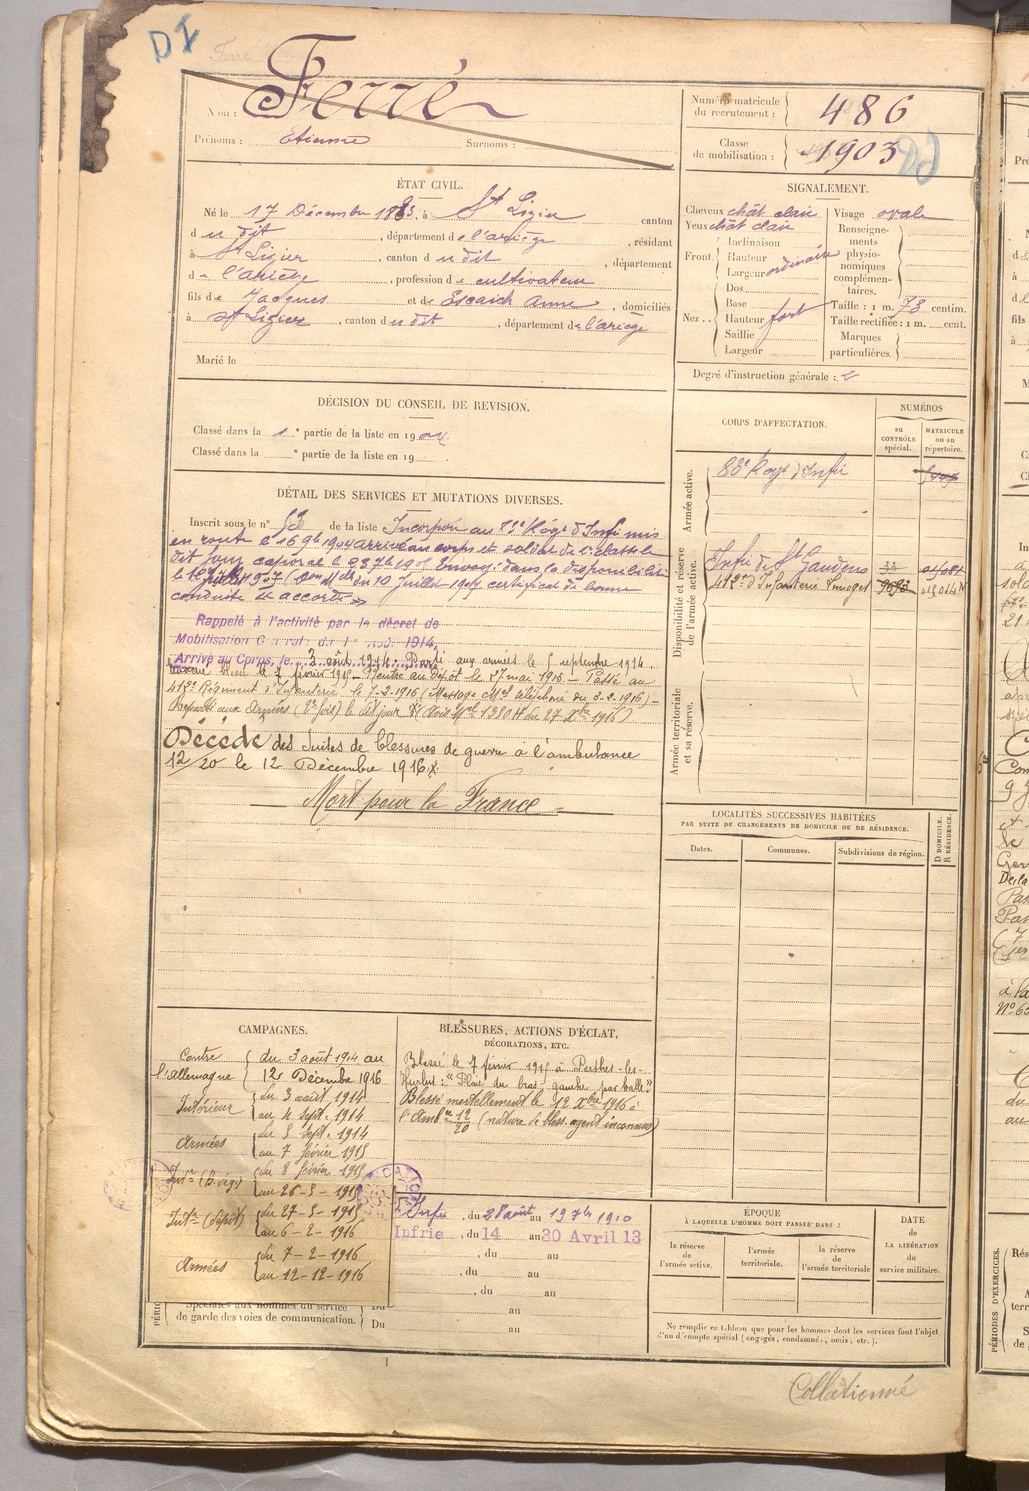 D I
Nom : Ferré
Prénoms : Etienne Surnoms :
Numéro matricule du recrutement : 486
Classe de mobilisation : 1903
ÉTAT CIVIL.
Né le 17 Décembre 1883, à St Lizier canton
d u dit, département de l'ariège, résidant
à St Lizier, canton d u dit, département
de l'ariège, profession de cultivateur
fils de Jacques et de Escaich Anne, domiciliés
à St Lizier, canton du dit, département de l'ariège
Marié le
SIGNALEMENT.
Cheveux chât clair Visage ovale
Yeux chât clair
Front. Inclinaison
Hauteur
Largeur ordinaire
Nez.. Dos
Base
Hauteur fort
Saillie
Largeur
Renseignements physionomiques complémentaires.
Taille : 1 m. 73 centim.
Taille rectifiée : 1 m. cent.
Marques particulières.
Degré d'instruction générale : 2
DÉCISION DU CONSEIL DE REVISION.
Classé dans la 1e partie de la liste en 1904.
Classé dans la e partie de la liste en 19
CORPS D'AFFECTATION.
NUMÉROS
au CONTRÔLE spécial.
MATRICULE ou au répertoire.
Armée active.
83e Regt d'Infie
Disponibilité et réserve de l'armée active.
Infie de St Gaudens
412e d'Infanterie Limoges
Armée territoriale et sa réserve.
DÉTAIL DES SERVICES ET MUTATIONS DIVERSES.
Inscrit sous le n° 53 de la liste Incorporé au 83e Rég. d'Infie mis
en route le 16 9bre 1904 arrivé au corps et soldat de 2e classe le
dit jour, caporal le 23 7bre 1905 Envoyé dans la disponibilité
le 12 juillet 1907 du 10 Juillet 1907 certificat de bonne
conduite accordé
Rappelé à l'activité par le décret de
Mobilisation Générale du 1er Août 1914,
Arrivé au Corps, le 3 août 1914. Parti aux armées le 5 septembre 1914.
Blessé le 7 février 1915 - Rentré au dépôt le 27 mai 1915 - Passé au
412e Régiment d'Infanterie le 7-2-1916 (Message téléphoné du 3-2-1916) -
Reparti aux Armées (2e fois) le dit jour (Avis Mel 1350 H du 27 Xbre 1916)
Décédé des suites de blessures de guerre à l'ambulance
12/20 le 12 Décembre 1916.
Mort pour la France
LOCALITÉS SUCCESSIVES HABITÉES
PAR SUITE DE CHANGEMENTS DE DOMICILE OU DE RÉSIDENCE.
Dates.
Communes.
Subdivisions de région.
D DOMICILE. R RÉSIDENCE.
CAMPAGNES.
Contre l'allemagne du 3 août 1914 au 12 Décembre 1916
Intérieur du 3 août 1914 au 4 sept. 1914
Armées du 5 Sept. 1914 au 7 février 1915
Intr (B. dég) du 8 février 1915 au 26-5-1915
Intr (dépôt) du 27-5-1915 au 6-2-1916
Armées du 7-2-1916 au 12-12-1916
BLESSURES, ACTIONS D'ÉCLAT,
DÉCORATIONS, ETC.
Blessé le 7 février 1915 à Perthes-les-
Hurlus : "Plaie du bras gauche par balle"
Blessé mortellement le 12 Xbre 1916 à
l'Ambce 12/20 (nature de bless. agent inconnus)
Infie, du 28 août au 19 7bre 1910
Infrie, du 14 au 30 Avril 13
, du au
, du au
, du au
Du au
Spéciales aux hommes du service
de garde des voies de communication.
Du au
ÉPOQUE
À LAQUELLE L'HOMME DOIT PASSER DANS :
la réserve de l'armée active.
l'armée territoriale.
la réserve de l'armée territoriale
DATE de LA LIBÉRATION du service militaire.
Ne remplir ce tableau que pour les hommes dont les services font l'objet
d'un décompte spécial (engagés, condamnés, omis, etc.).
Collationné
PÉRIODES D'EXERCICES.